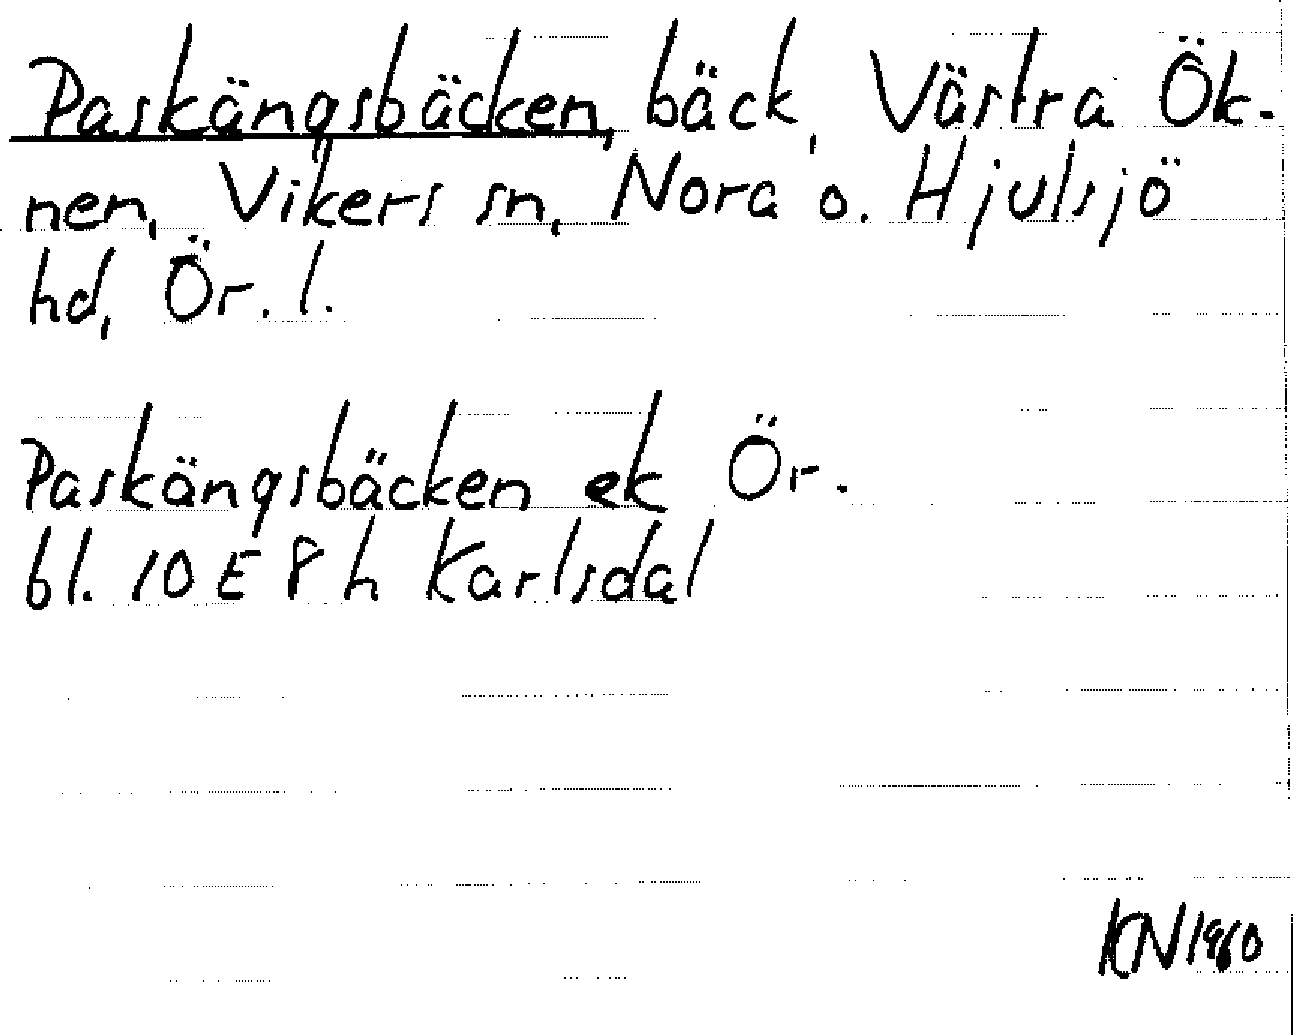 Paskängsbäcken, bäck, Västra Ök-
nen, Vikers sn, Nora o. Hjulsjö
hd, Ör. l.
Paskängsbäcken ek Ör.
bl. 10 E 8 h Karlsdal
KN 1960